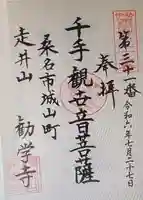 第三十一番
令和六年七月二十七日
奉拝
千手観世音菩薩
桑名市城山町
走井山
勧学寺